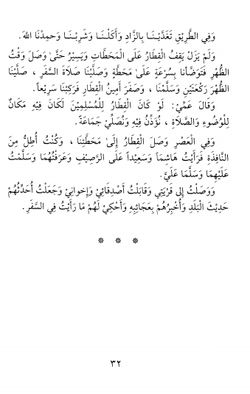 وَفِي الطَّرِيْقِ تَغَدَّيْنَا بِالزَّادِ وَأَكَلْنَا وَشَرِبْنَا وَحَمِدْنَا اللهَ.
وَلَمْ يَزَلْ يَقِفُ الْقِطَارُ عَلَى الْمَحَطَّاتِ وَيَسِيْرُ حَتَّى وَصَلَ وَقْتُ
الظُّهْرِ فَتَوَضَّأْنَا بِسُرْعَةٍ عَلَى مَحَطَّةٍ وَصَلَّيْنَا صَلَاةَ السَّفَرِ ، صَلَّيْنَا
الظُّهْرَ رَكْعَتَيْنِ وَسَلَّمْنَا ، وَصَفَرَ أَمِيْنُ الْقِطَارِ فَرَكِبْنَا سَرِيْعاً.
وَقَالَ عَمِّيْ: لَوْ كَانَ الْقِطَارُ لِلْمُسْلِمِيْنَ لَكَانَ فِيْهِ مَكَانٌ
لِلْوُضُوْءِ وَالصَّلَاةِ ، نُؤَذِّنُ فِيْهِ وَنُصَلِّيْ جَمَاعَةً.
وَفِي الْعَصْرِ وَصَلَ الْقِطَارُ إِلَى مَحَطَّتِنَا ، وَكُنْتُ أُطِلُّ مِنَ
النَّافِذَةِ فَرَأَيْتُ هَاشِماً وَسَعِيْداً عَلَى الرَّصِيْفِ وَعَرَفْتُهُمَا وَسَلَّمْتُ
عَلَيْهِمَا وَسَلَّمَا عَلَيَّ.
وَوَصَلْتُ إِلَى قَرْيَتِيْ وَقَابَلْتُ أَصْدِقَائِيْ وَإِخْوَانِيْ وَجَعَلْتُ أُحَدِّثُهُمْ
حَدِيْثَ الْبَلَدِ وَأُخْبِرُهُمْ بِعَجَائِبِهِ وَأَحْكِيْ لَهُمْ مَا رَأَيْتُ فِي السَّفَرِ.
* * *
٣٢